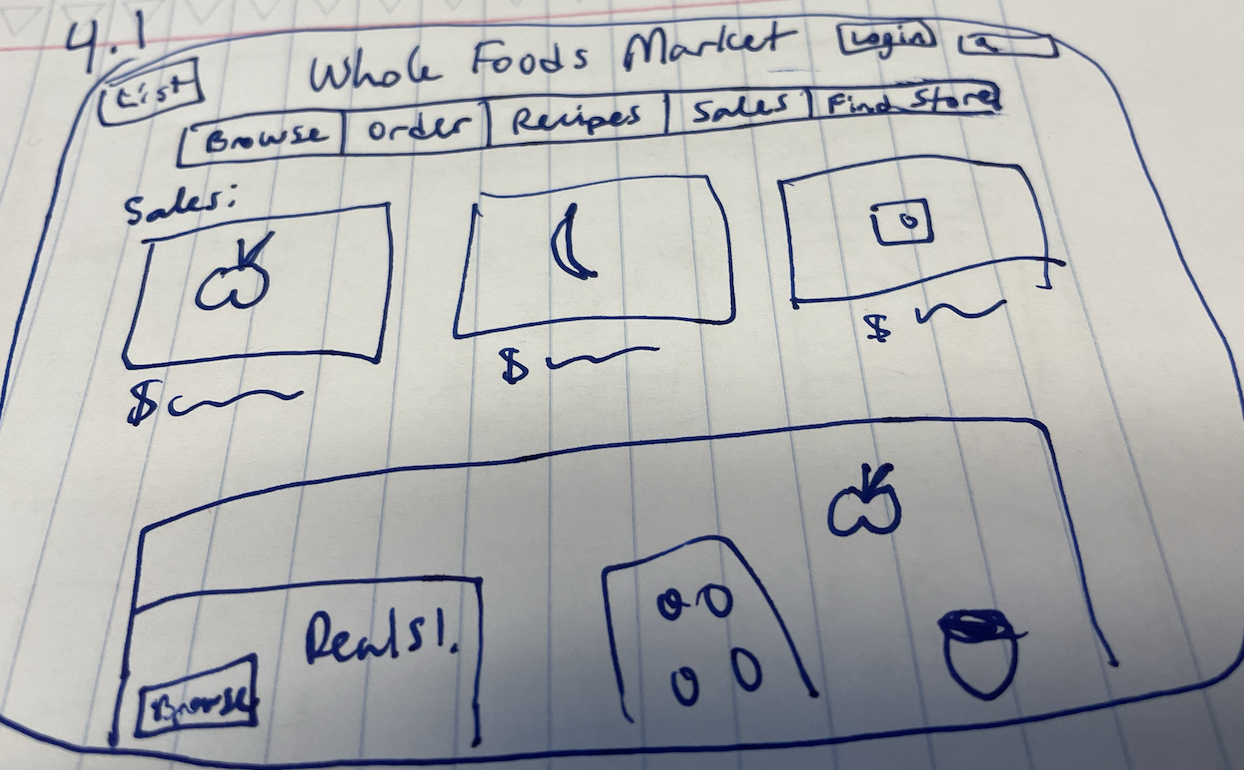 4.1
List
Whole Foods Market
Login
Browse Order Recipes Sales Find Store
Sales:
$
$
$
Deals!
Browse